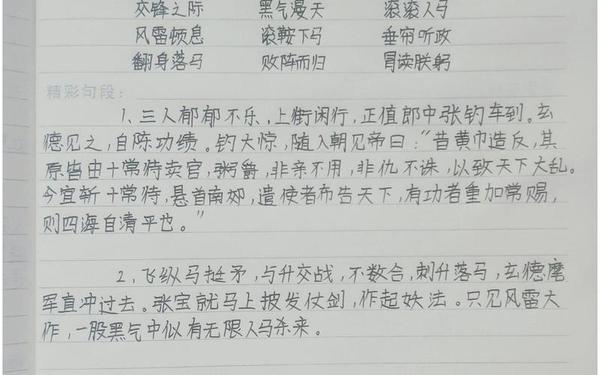 交锋之际 黑气漫天 滚滚人马
风雷顿息 滚鞍下马 垂帘听政
翻身落马 败阵而归 冒读朕躬
精彩句段：
1、三人郁郁不乐，上街闲行，正值郎中张钧车到。玄
德见之，自陈功绩。钧大惊，随入朝见帝曰：“昔黄巾造反，其
原皆由十常侍卖官，鬻爵，非亲不用，非仇不诛，以致天下大乱。
今宜斩十常侍，悬首南郊，遣使者布告天下，有功者重加常赐，
则四海自清平也。”
2、飞纵马挺矛，与升交战，不数合，刺升落马，玄德麾
军直冲过去。张宝就马上披发仗剑，作起妖法。只见风雷大
作，一股黑气中似有无限人马杀来。